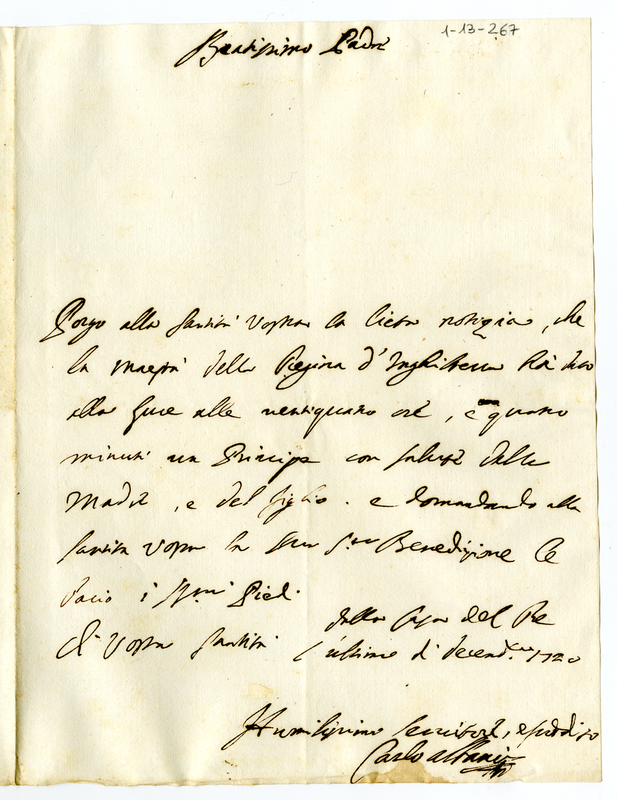 1-13-267
Beatissimo Padre
Porgo alla Santità Vostra la lieta notizia, che
la Maestà della Regina d'Inghilterra hà dato
alla luce alle ventiquatro ore, e quatro
minuti un Principe con salute della
Madre, e del figlio. e domandando alla
Santità Vostra la Sua S.ta Benedizione le
bacio i SS.mi Piedi.
Di Vostra Santità
dalla Casa del Re
l'ultimo di decemb.re 1720
Humilissimo servitore, e suddito
Carlo Albani